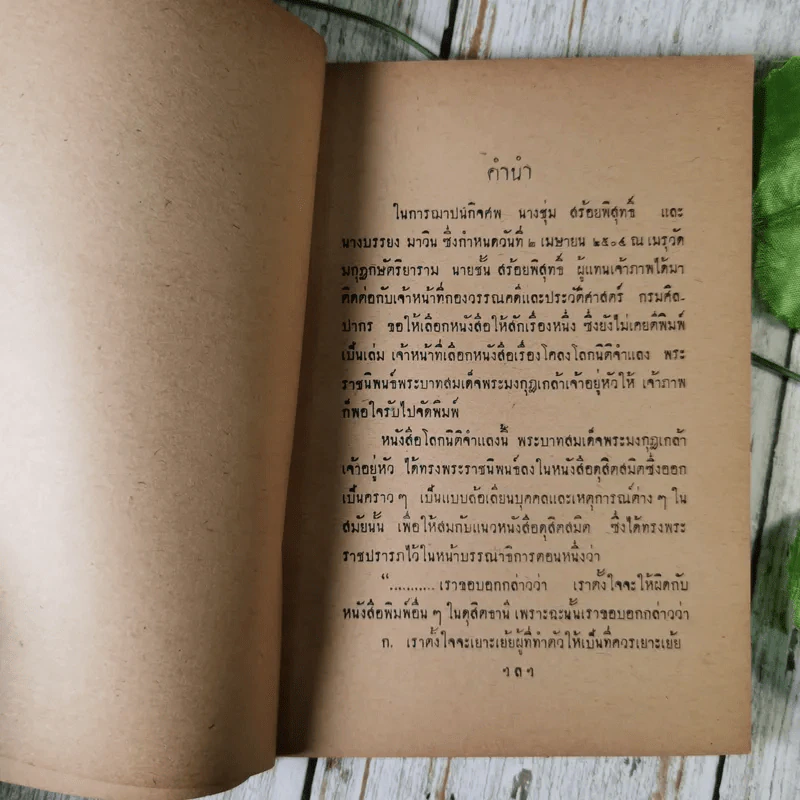 คำนำ
ในการฌาปนกิจศพ นางชุ่ม สร้อยพิสุทธิ์ และ
นางบรรยง มาวิน ซึ่งกำหนดวันที่ ๒ เมษายน ๒๕๐๔ ณ เมรุวัด
มกุฏกษัตริยาราม นายชั้น สร้อยพิสุทธิ์ ผู้แทนเจ้าภาพได้มา
ติดต่อกับเจ้าหน้าที่กองวรรณคดีและประวัติศาสตร์ กรมศิล-
ปากร ขอให้เลือกหนังสือให้สักเรื่องหนึ่ง ซึ่งยังไม่เคยตีพิมพ์
เป็นเล่ม เจ้าหน้าที่เลือกหนังสือเรื่องโคลงโลกนิติจำแลง พระ
ราชนิพนธ์พระบาทสมเด็จพระมงกุฎเกล้าเจ้าอยู่หัวให้ เจ้าภาพ
ก็พอใจรับไปจัดพิมพ์
หนังสือโลกนิติจำแลงนี้ พระบาทสมเด็จพระมงกุฎเกล้า
เจ้าอยู่หัว ได้ทรงพระราชนิพนธ์ลงในหนังสือดุสิตสมิตซึ่งออก
เป็นคราว ๆ เป็นแบบล้อเลียนบุคคลและเหตุการณ์ต่าง ๆ ใน
สมัยนั้น เพื่อให้สมกับแนวหนังสือดุสิตสมิต ซึ่งได้ทรงพระ
ราชปรารภไว้ในหน้าบรรณาธิการตอนหนึ่งว่า
“........... เราขอบอกกล่าวว่า เราตั้งใจจะให้ผิดกับ
หนังสือพิมพ์อื่น ๆ ในดุสิตธานี เพราะฉะนั้นเราขอบอกกล่าวว่า
ก. เราตั้งใจจะเยาะเย้ยผู้ที่ทำตัวให้เป็นที่ควรเยาะเย้ย